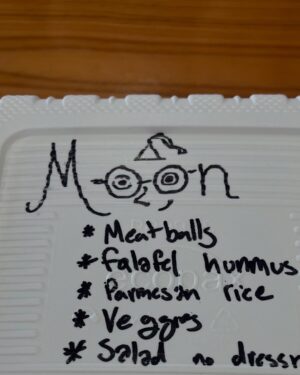 Moon
* Meatballs
* falafel hummus
* Parmesan rice
* Veggies
* Salad no dressi